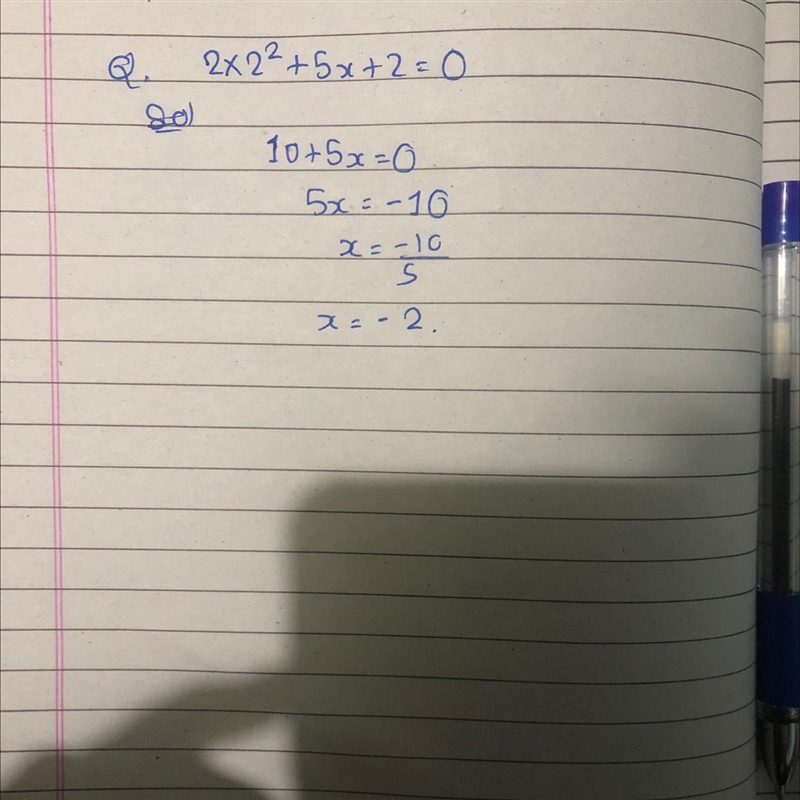 Q. 2×2²+5x+2=0
Sol
10+5x=0
5x=-10
x=-10/5
x=-2.